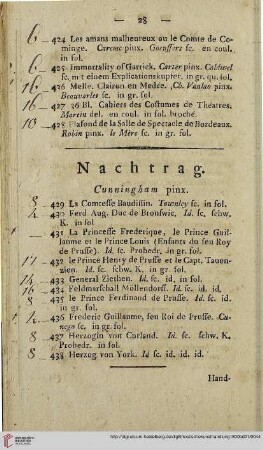 — 28 —
6 — 424 Les amans malheureux ou le Comte de Co-
minge. Carene pinx. Goeuffers sc. en coul.
in fol.
6 — 425 Immortality of Garrick. Carter pinx. Caldwel
sc. mt einem Explicationskupfer. in gr. qu. fol.
16 — 426 Melle. Clairon en Medée. Ch. Vanloo pinx.
Beauvarlet sc. in gr. fol.
16 — 427 36 Bl. Cahiers des Costumes de Theatres.
Martin del. en coul. in fol. broché.
10 — 428 Plafond de la Salle de Spectacle de Bordeaux.
Robin pinx. le Mère sc. in gr. fol.
Nachtrag.
Cunningham pinx.
8 — 429 La Comtesse Baudissin. Townley sc. in fol.
— 430 Ferd Aug. Duc de Bronswic, Id. sc. schw.
K. in fol
— 431 La Princesse Frederique, le Prince Guil-
laume et le Prince Louis (Enfants du feu Roy
de Prusse). Id. sc. Probedr. in gr. fol.
— 432 le Prince Henry de Prusse et le Capt. Tauen-
zien. Id. sc. schw. K. in gr. fol.
14 — 433 General Ziethen. Id. sc. id. in fol.
16 — 434 Feldmarschall Möllendorf. Id. sc. id. id.
8 — 435 le Prince Ferdinand de Prusse. Id. sc. id.
id.
— 436 Frederic Guillaume, feu Roi de Prusse. Cu-
nego sc. in gr. fol.
8 — 437 Herzogin von Curland. Id. sc. schw. K.
Probedr. in fol.
8 — 438 Herzog von York. Id sc. id. id. id.
Hand-